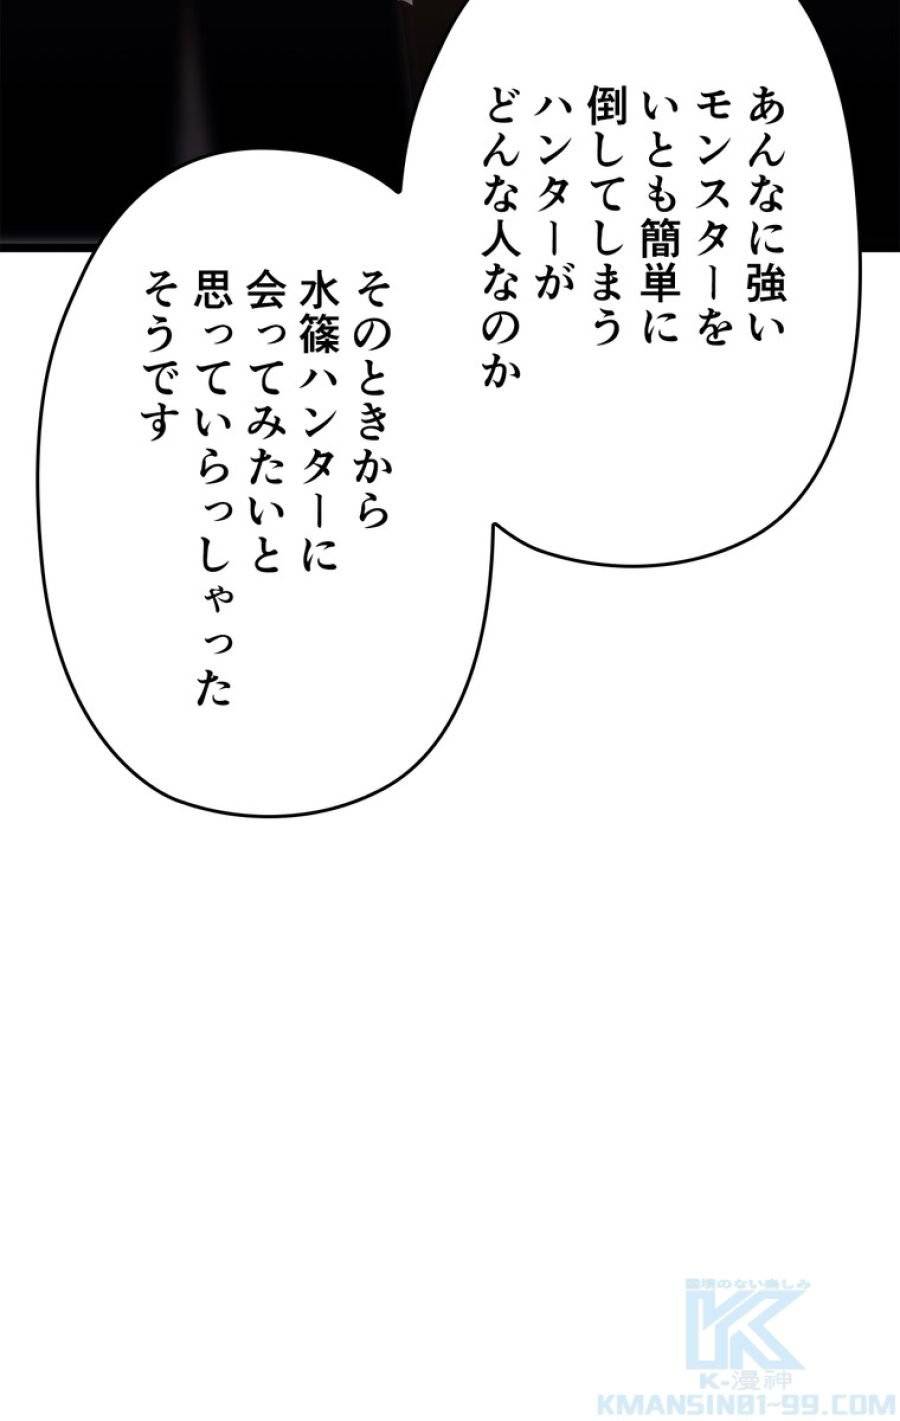 あんなに強い
モンスターを
いとも簡単に
倒してしまう
ハンターが
どんな人なのか
そのときから
水篠ハンターに
会ってみたいと
思っていらっしゃった
そうです
限壊のない楽しみ
K-漫神
KMANSIN01-99.COM